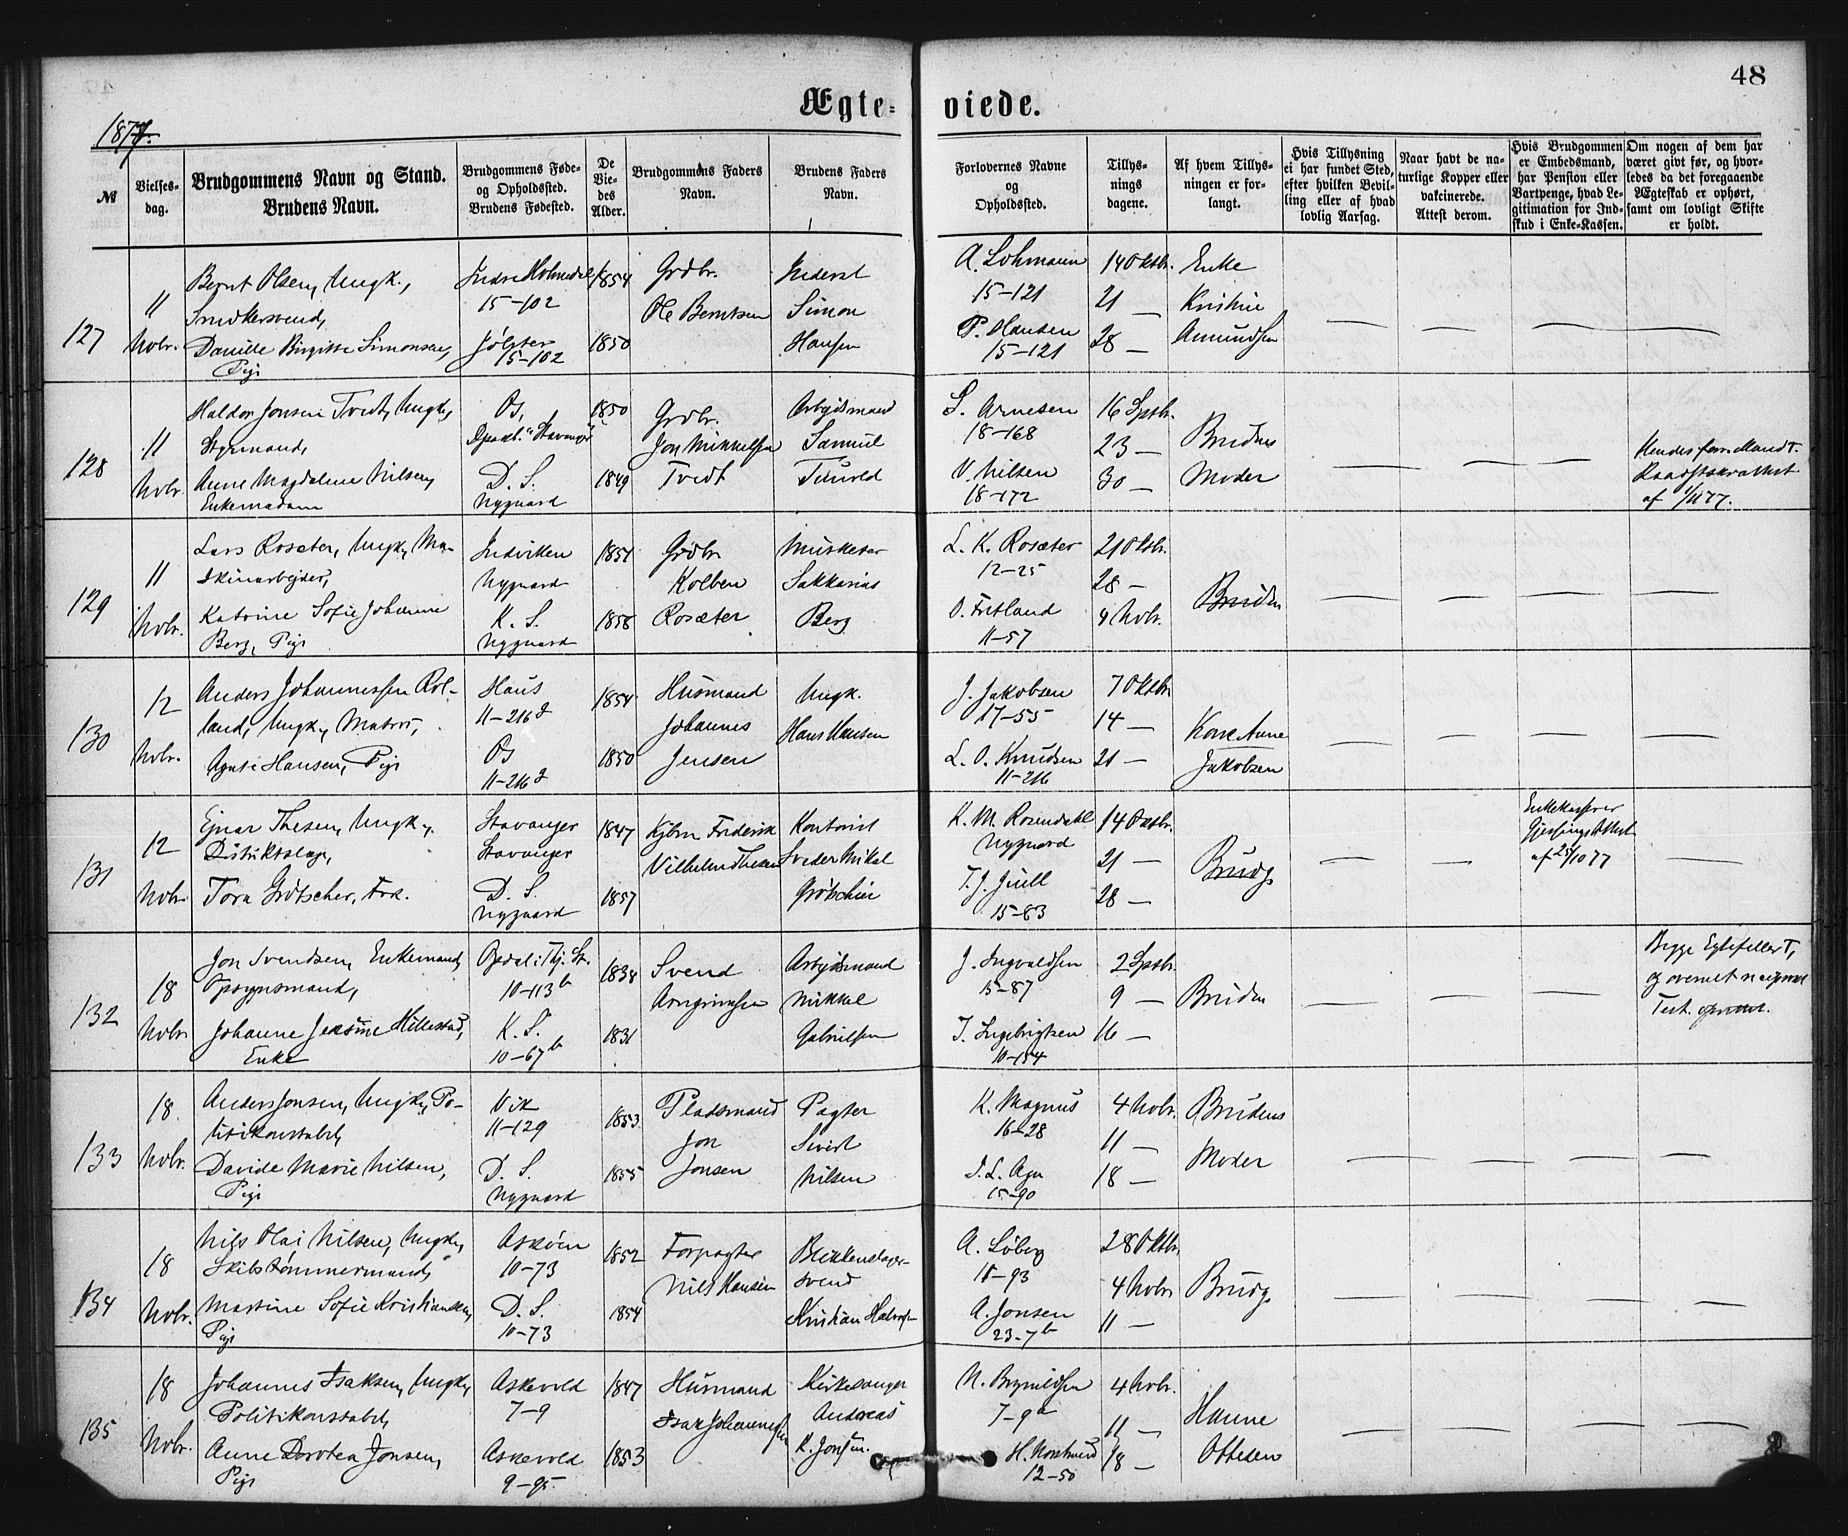 48
Ægte-viede.
1877.
№
Vielsesdag.
Brudgommens Navn og Stand.
Brudens Navn.
Brudgommens Føde-
og Opholdssted.
Brudens Fødested.
De
Vie-
des
Alder.
Brudgommens Faders
Navn.
Brudens Faders
Navn.
Forlovernes Navne
og
Opholdssted.
Tillys-
nings
dagene.
Af hvem Tillys-
ningen er for-
langt.
Hvis Tillysning
ei har fundet Sted,
efter hvilken Bevil-
ling eller af hvad
lovlig Aarsag.
Naar havt de na-
turlige Kopper eller
vakcinerede.
Attest derom.
Hvis Brudgommen
er Embedsmand,
har Pension eller
Vartpenge, hvad Le-
gitimation for Ind-
skud i Enke-Kassen.
Om nogen af dem har
været givt før, og hvor-
ledes da det foregaaende
Ægteskab er ophørt,
samt om lovligt Skifte
er holdt.
127
11 Novbr.
Bernt Olsen, Ungk.,
Snedkersvend,
Danille Birgitte Simonsen,
Pige
Indre Holmedal
15-102
Jølster
15-102
1854
1850
Grdbr.
Ole Berntsen
Inderst
Simon
Hansen
A. Lohmann
15-121
P. Hansen
15-121
14 Oktbr.
21 —
28 —
Enke
Kristine
Amundsen
128
11 Novbr.
Haldor Jonsen Tvedt, Ungk.,
Styrmand,
Anne Magdalene Nilsen,
Enkemadam
Os,
Dpsk. "Stavanger"
D. S.
Nygaard
1850
1849
Grdbr.
Jon Mikkelsen
Tvedt
Arbeidsmand
Samuel
S. Arnesen
18-168
V. Nilsen
18-172
16 Sptbr.
23 —
30 —
Brudens
Moder
Hendes forr. Mand †.
Skifteretsattest
af 1/11 77.
129
11 Novbr.
Lars Rosæter, Ungk., Ma-
skinarbejder,
Katrine Sofie Johanne
Berg, Pige
Indviken
Nygaard
K. S.
Nygaard
1854
1856
Grdbr.
Kolben
Rosæter
Musketer
Sakkarias
Berg
L. K. Rosæter
12-25
O. Fretland
11-57
21 Oktbr.
28 —
4 Novbr.
Bruden
130
12 Novbr.
Anders Johannessen Rol-
land, Ungk., Matros,
Agate Hansen, Pige
Haus
11-216 d
Os
11-216 d
1854
1850
Husmand
Johannes
Jensen
Ungk.
Hans Hansen
J. Jakobsen
17-55
L. O. Knudsen
11-216
7 Oktbr.
14 —
21 —
Kone Anne
Jakobsen
131
12 Novbr.
Ejnar Thesen, Ungk.,
Distriktslæge,
Tora Grötscher, Frk.
Stavanger
Stavanger
D. S.
Nygaard
1847
1857
Kjbm. Frederik
Vilhelm Thesen
Kontorist
Sveder Mikal
Grötscher
K. M. Rosendahl
Nygaard
T. J. Juell
15-83
14 Oktbr.
21 —
28 —
Brudg.
Enkekasserer
Gjessings Attest
af 25/10 77
132
18 Novbr.
Jon Svendsen, Enkemand,
Opsynsmand,
Johanne Jensine Hillestad,
Enke
Opdal i Thj. St.
10-113 b
K. S.
10-67 b
1834
1831
Svend
Arngrimsen
Arbeidsmand
Mikkel
Gabrielsen
J. Ingvaldsen
15-87
T. Ingebrigtsen
10-154
2 Sptbr.
9 —
16 —
Bruden
Begge Egtefeller †,
133
18. Novbr.
Anders Jonsen, Ungk., Po-
litikonstabel,
Davide Marie Nilsen,
Pige
Vik
11-129
D. S.
Nygaard
1853
1855
Pladsmand
Jon
Jonsen
Pagter
Sivert
Nilsen
K. Magnus
16-28
J. L. Aga
15-90
4 Novbr.
11 —
18 —
Brudens
Moder
134
18 Novbr.
Nils Olai Nilsen, Ungk.,
Skibstømmermand,
Martine Sofie Kristiansen,
Pige
Askøen
10-73
D. S.
10-73
1852
1854
Forpagter
Nils Hansen
Blikkenslager-
svend
Kristian Halvorsen
A. Löberg
18-93
A. Jonsen
23-7 b
28 Oktbr.
4 Novbr.
11 —
Brudg.
135
18 Novbr.
Johannes Isaksen, Ungk.,
Politikonstabel,
Anne Dorotea Jonsen,
Pige
Askevold
7-9
Askevold
9-95
1847
1853
Husmand
Isak Johannessen
Kirkesanger
Andreas
K. Jonsen.
N. Brynildsen
7-9 a
12-50
4 Novbr.
11 —
18 —
Hanne
Ottesen